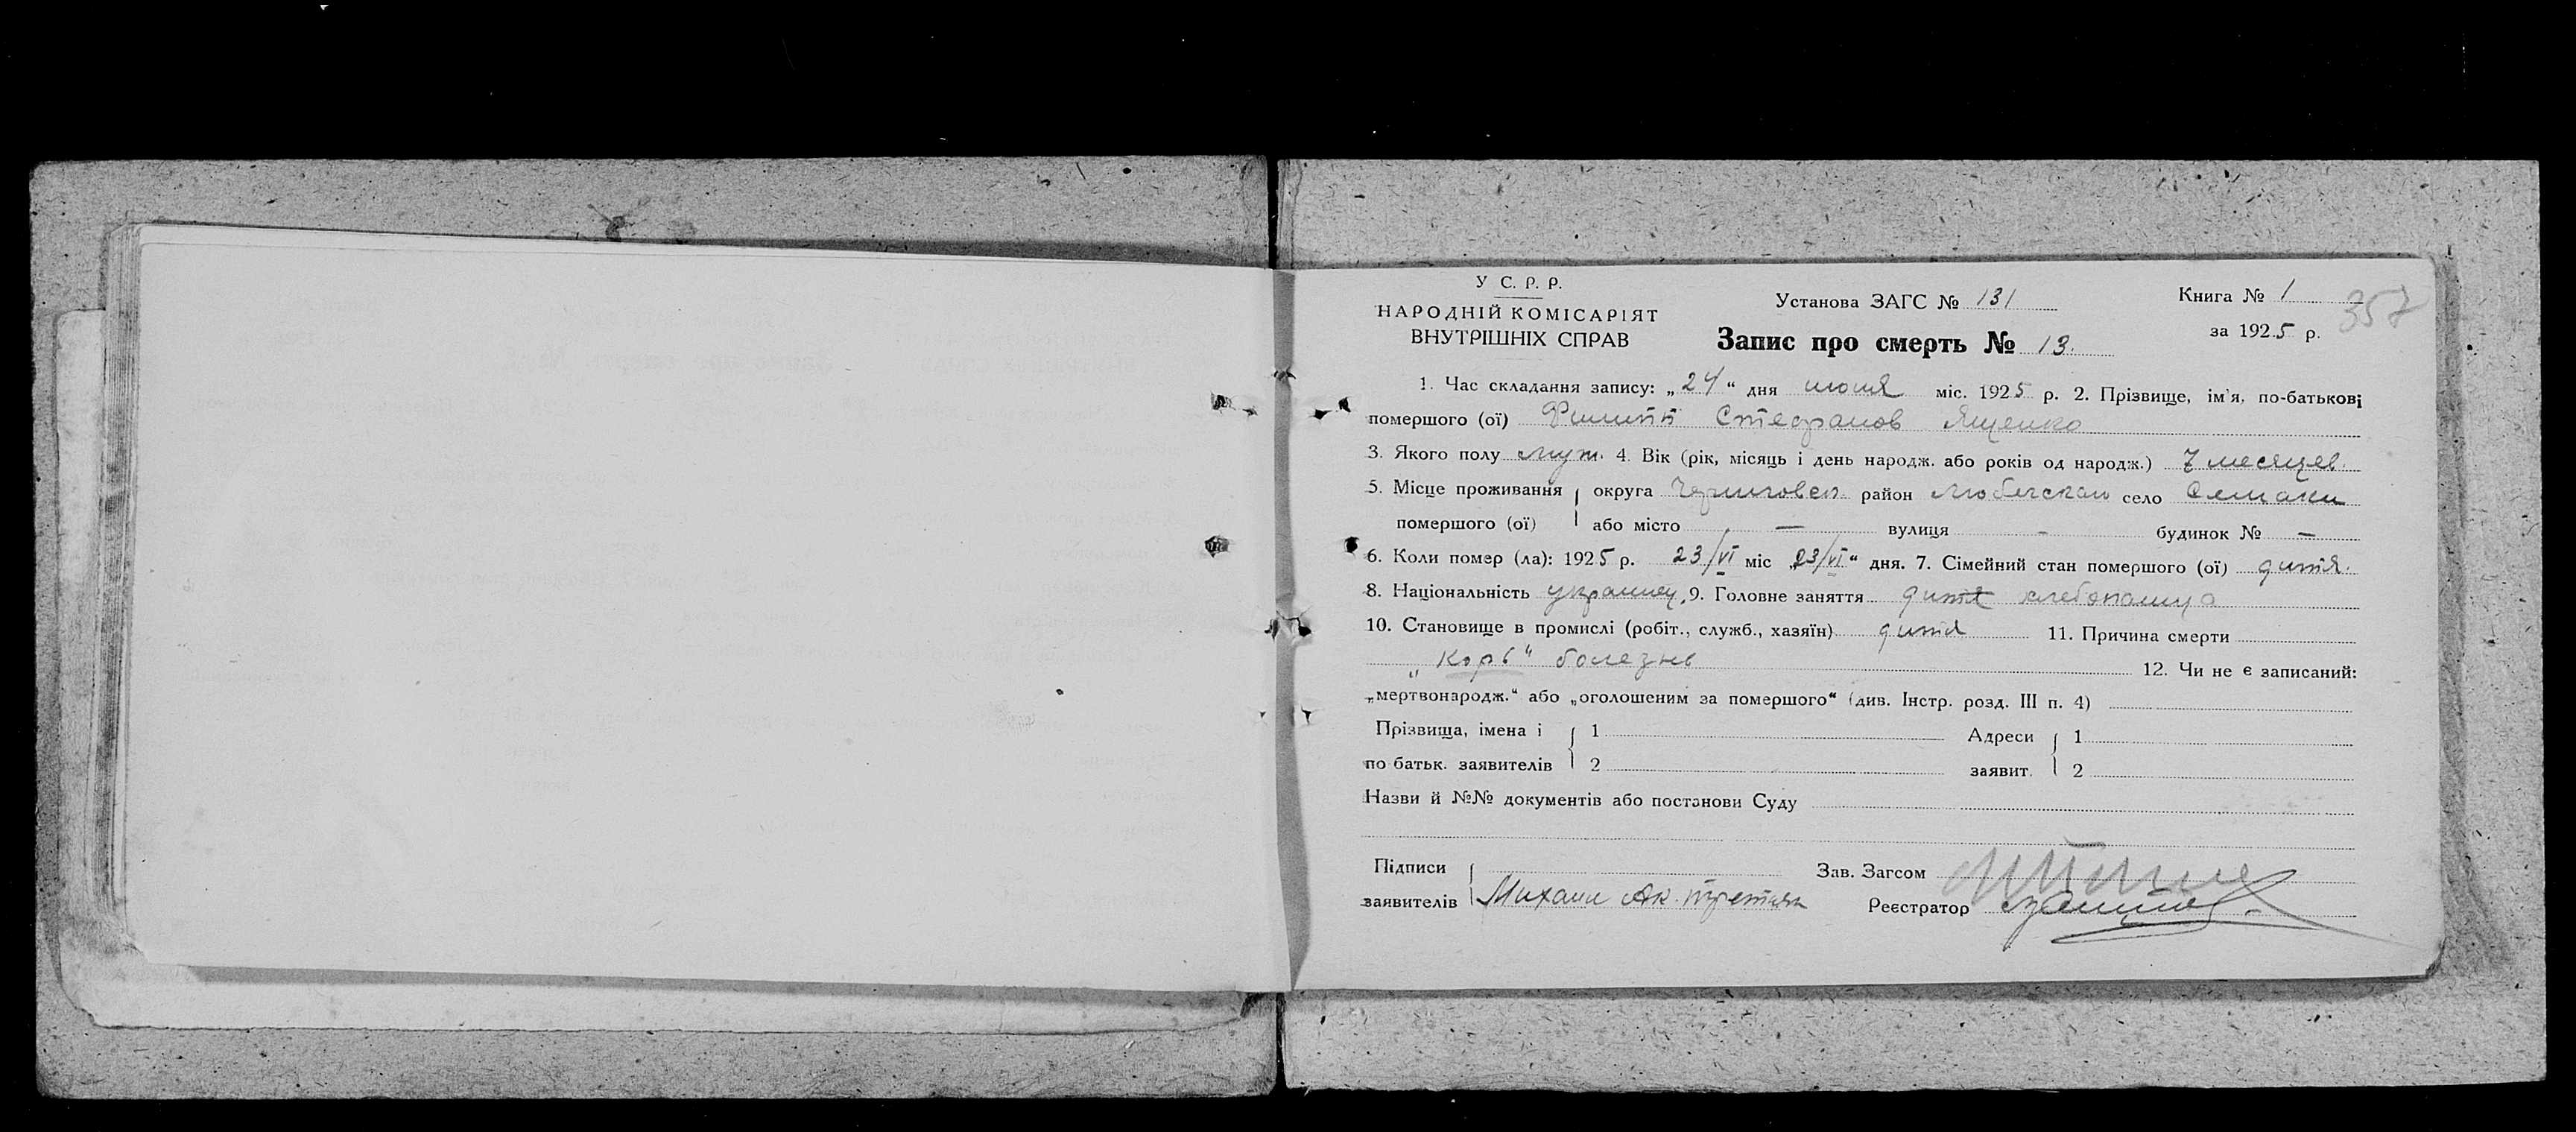 У С. Р. Р.
НАРОДНІЙ КОМІСАРІЯТ
ВНУТРІШНІХ СПРАВ
Установа ЗАГС № 131
Запис про смерть № 13.
Книга № 1
за 1925 р.
357
1. Час складання запису: „24“ дня июня міс. 1925 р. 2. Прізвище, ім'я, по-батькові
помершого (ої) Филипп Стефанов Ященко
3. Якого полу муж. 4. Вік (рік, місяць і день народж. або років од народж.) 7 месяцев.
5. Місце проживання округа Черниговск. район Любечского село Семаки
помершого (ої) або місто — вулиця - будинок № —
6. Коли помер (ла): 1925 р. 23/VI міс „23/VI“ дня. 7. Сімейний стан помершого (ої) дитя.
8. Національність украинец, 9. Головне заняття дитя хлебопашца
10. Становище в промислі (робіт., служб., хазяїн) дитя 11. Причина смерти
„Корь“ болезнь 12. Чи не є записаний:
„мертвонародж.“ або „оголошеним за помершого“ (див. Інстр. розд. III п. 4)
Прізвища, імена і 1 Адреси 1
по батьк. заявителів 2 заявит. 2
Назви й №№ документів або постанови Суду
Підписи Зав. Загсом
заявителів Михаил Ак. Третяк Реєстратор